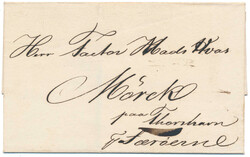 Herr Factor Mads Hvas
Mörck
paa Thorshavn
p Færöerne